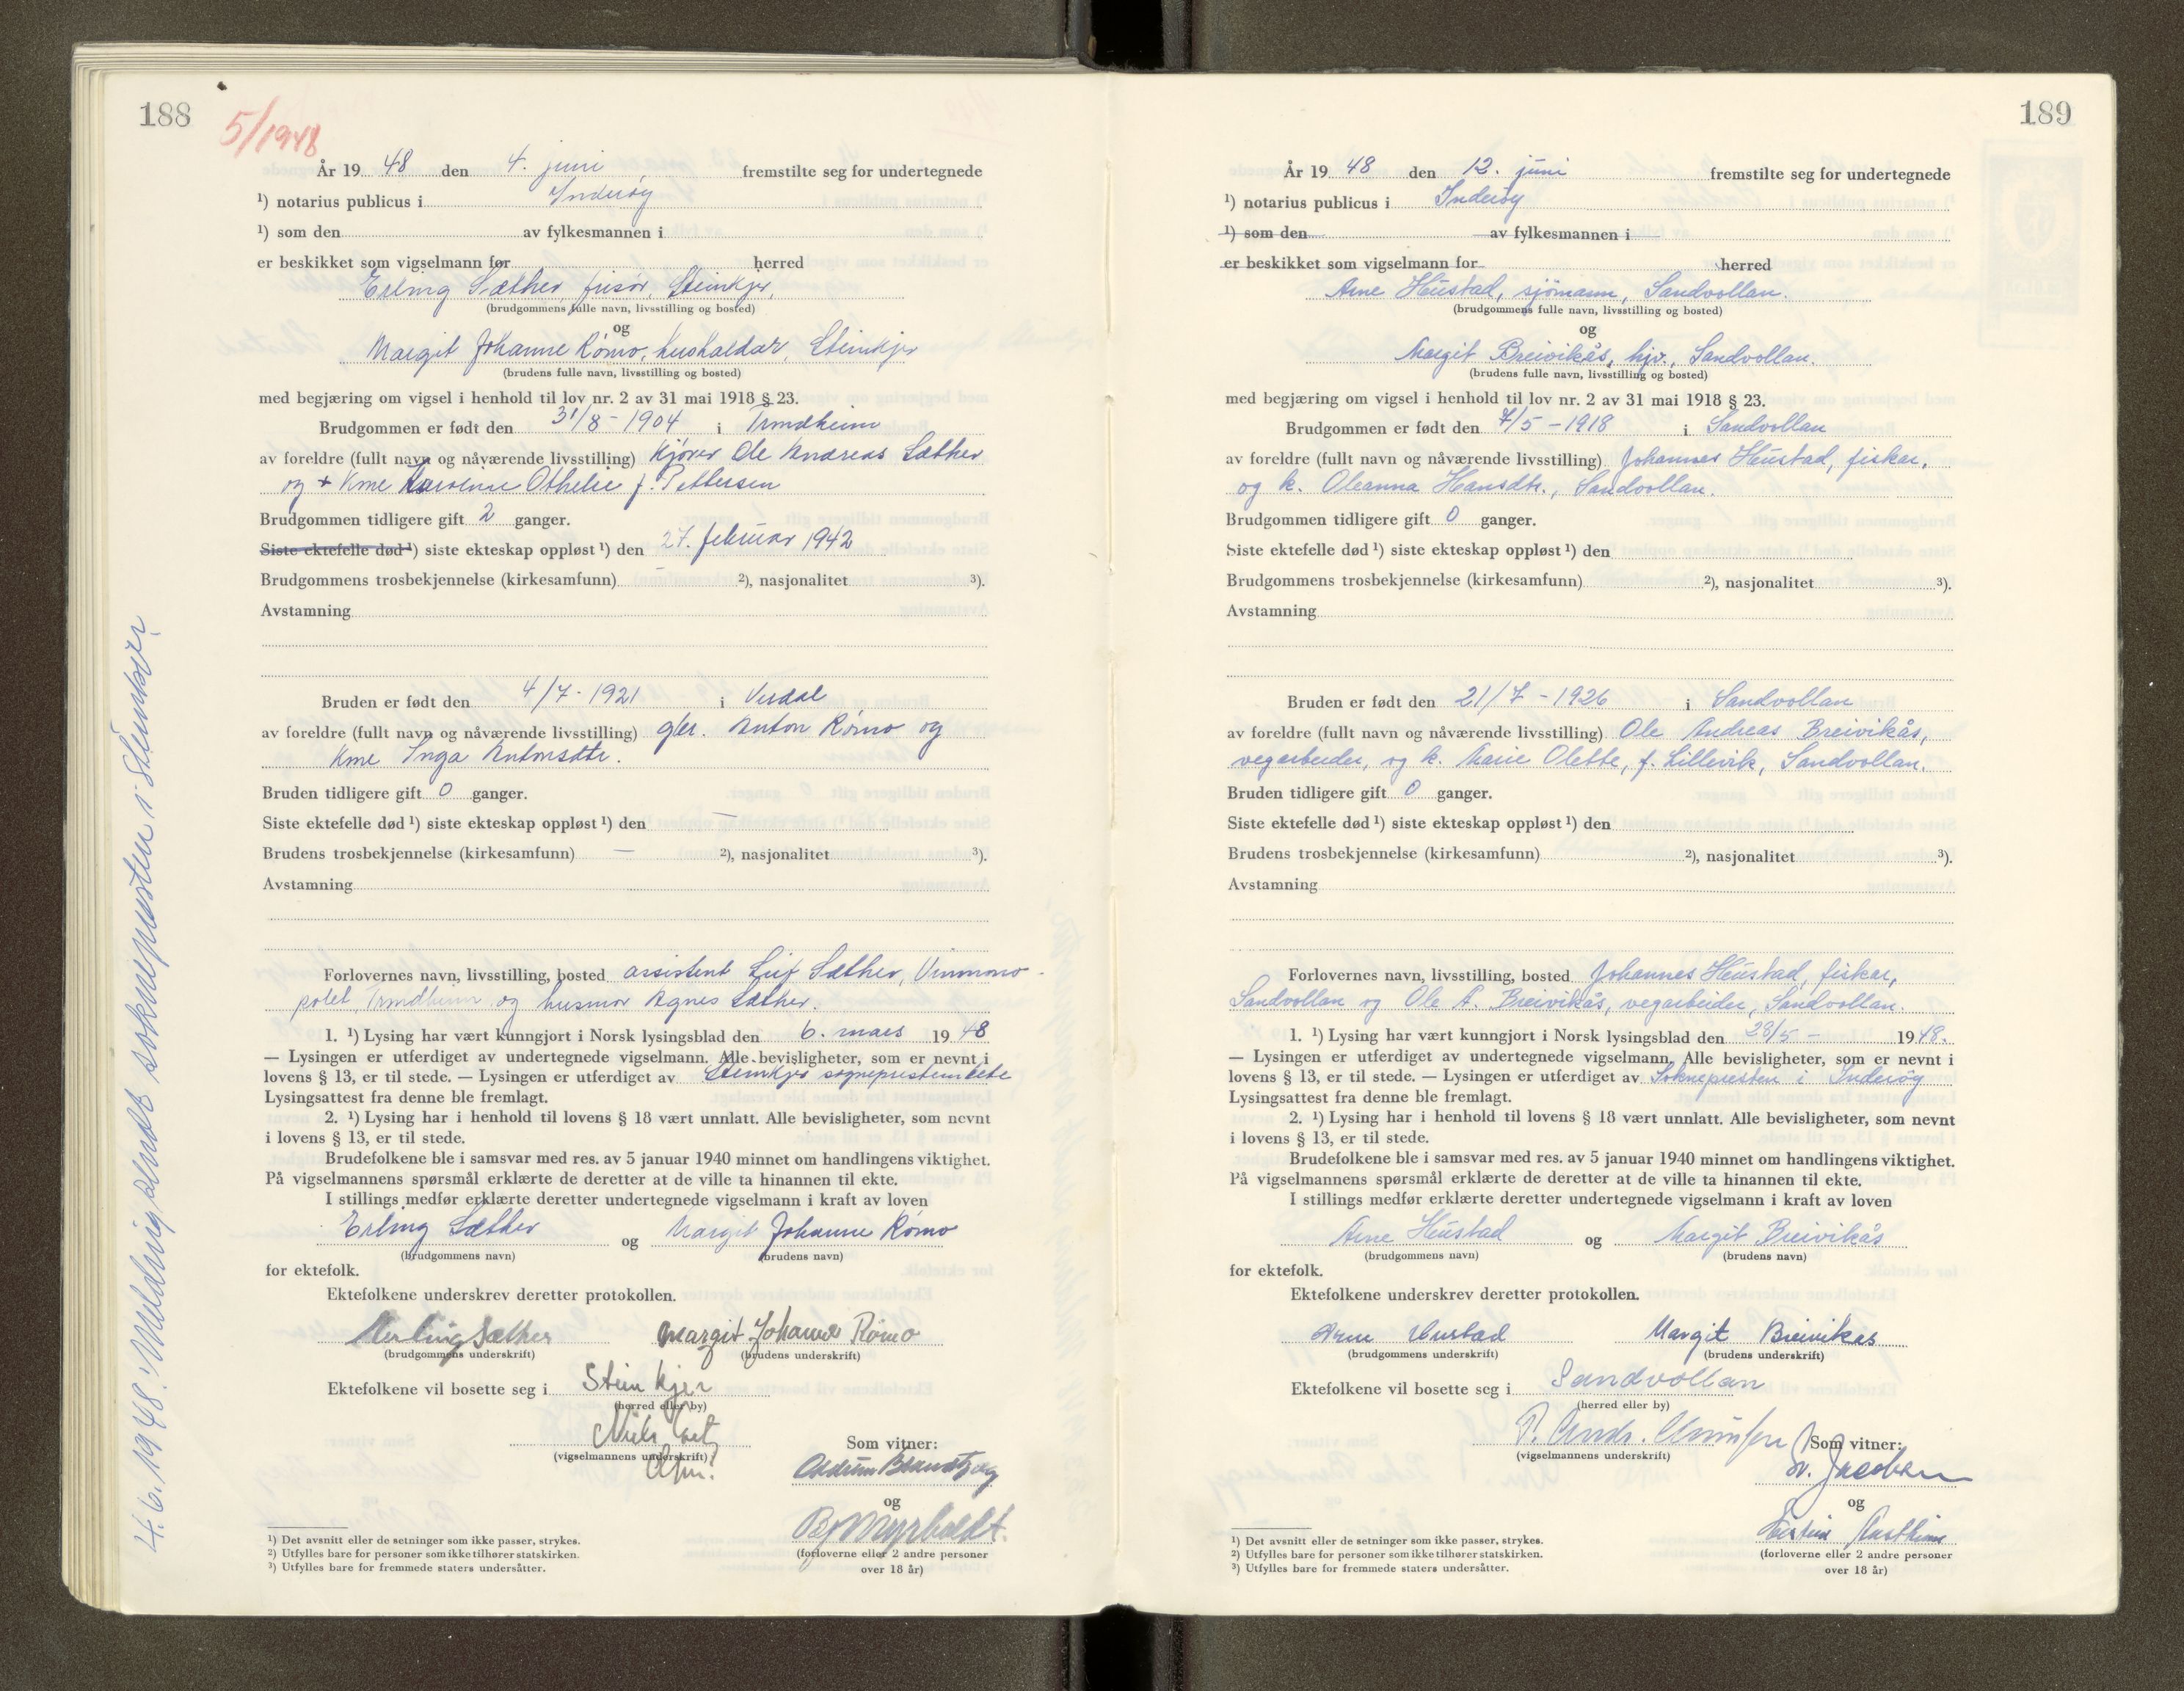 188
5/1948
År 19 48 den 4. juni fremstilte seg for undertegnede
¹) notarius publicus i Inderøy
¹) som den av fylkesmannen i
er beskikket som vigselmann for herred
Erling Sæther, frisør, Steinkjer,
(brudgommens fulle navn, livsstilling og bosted)
og
Margit Johanne Rømo, husholdar, Steinkjer
(brudens fulle navn, livsstilling og bosted)
med begjæring om vigsel i henhold til lov nr. 2 av 31 mai 1918 § 23.
Brudgommen er født den 31/8 - 1904 i Trondheim
av foreldre (fullt navn og nåværende livsstilling) Kjører Ole Andreas Sæther
og + Kme Karoline Othelie f. Pettersen
Brudgommen tidligere gift 2 ganger.
Siste ektefelle død ¹) siste ekteskap oppløst ¹) den 27. februar 1942
Brudgommens trosbekjennelse (kirkesamfunn) – ²), nasjonalitet ³).
Avstamning
Bruden er født den 4/7 - 1921 i Verdal
av foreldre (fullt navn og nåværende livsstilling) gbr. Anton Rømo og
Kme Inga Antonsdtr.
Bruden tidligere gift 0 ganger.
Siste ektefelle død ¹) siste ekteskap oppløst ¹) den –
Brudens trosbekjennelse (kirkesamfunn) – ²), nasjonalitet ³).
Avstamning
Forlovernes navn, livsstilling, bosted assistent Leif Sæther, Vinmono-
polet, Trondheim og husmor Agnes Sæther.
1. ¹) Lysing har vært kunngjort i Norsk lysingsblad den 6. mars 19 48
— Lysingen er utferdiget av undertegnede vigselmann. Alle bevisligheter, som er nevnt i
lovens § 13, er til stede. — Lysingen er utferdiget av Steinkjer sogneprestembete
Lysingsattest fra denne ble fremlagt.
2. ¹) Lysing har i henhold til lovens § 18 vært unnlatt. Alle bevisligheter, som nevnt
i lovens § 13, er til stede.
Brudefolkene ble i samsvar med res. av 5 januar 1940 minnet om handlingens viktighet.
På vigselmannens spørsmål erklærte de deretter at de ville ta hinannen til ekte.
I stillings medfør erklærte deretter undertegnede vigselmann i kraft av loven
Erling Sæther og Margit Johanne Rømo
(brudgommens navn) (brudens navn)
for ektefolk.
Ektefolkene underskrev deretter protokollen.
Erling Sæther Margit Johanne Rømo
(brudgommens underskrift) (brudens underskrift)
Ektefolkene vil bosette seg i Steinkjer
(herred eller by)
Niels
(vigselmannens underskrift)
Som vitner:
og
B. Myrboldt.
(forloverne eller 2 andre personer
over 18 år)
¹) Det avsnitt eller de setninger som ikke passer, strykes.
²) Utfylles bare for personer som ikke tilhører statskirken.
³) Utfylles bare for fremmede staters undersåtter.
4.6.1948: Melding sendt soknepresten i Steinkjer
189
År 19 48 den 12. juni fremstilte seg for undertegnede
¹) notarius publicus i Inderöy
¹) som den av fylkesmannen i
er beskikket som vigselmann for herred
Arne Hustad, sjömann, Sandvollan.
(brudgommens fulle navn, livsstilling og bosted)
og
Margit Breivikås, hjv., Sandvollan.
(brudens fulle navn, livsstilling og bosted)
med begjæring om vigsel i henhold til lov nr. 2 av 31 mai 1918 § 23.
Brudgommen er født den 7/5 - 1918 i Sandvollan
av foreldre (fullt navn og nåværende livsstilling) Johannes Hustad, fisker,
og k. Oleanna Hansdtr., Sandvollan.
Brudgommen tidligere gift 0 ganger.
Siste ektefelle død ¹) siste ekteskap oppløst ¹) den
Brudgommens trosbekjennelse (kirkesamfunn) ²), nasjonalitet ³).
Avstamning
Bruden er født den 21/7 - 1926 i Sandvollan
av foreldre (fullt navn og nåværende livsstilling) Ole Andreas Breivikås,
vegarbeider, og k. Marie Olette, f. Lillevik, Sandvollan.
Bruden tidligere gift 0 ganger.
Siste ektefelle død ¹) siste ekteskap oppløst ¹) den
Brudens trosbekjennelse (kirkesamfunn) ²), nasjonalitet ³).
Avstamning
Forlovernes navn, livsstilling, bosted Johannes Hustad, fisker,
Sandvollan og Ole A. Breivikås, vegarbeider, Sandvollan.
1. ¹) Lysing har vært kunngjort i Norsk lysingsblad den 28/5 - 19 48.
— Lysingen er utferdiget av undertegnede vigselmann. Alle bevisligheter, som er nevnt i
lovens § 13, er til stede. — Lysingen er utferdiget av Soknepresten i Inderöy
Lysingsattest fra denne ble fremlagt.
2. ¹) Lysing har i henhold til lovens § 18 vært unnlatt. Alle bevisligheter, som nevnt
i lovens § 13, er til stede.
Brudefolkene ble i samsvar med res. av 5 januar 1940 minnet om handlingens viktighet.
På vigselmannens spørsmål erklærte de deretter at de ville ta hinannen til ekte.
I stillings medfør erklærte deretter undertegnede vigselmann i kraft av loven
Arne Hustad og Margit Breivikås
(brudgommens navn) (brudens navn)
for ektefolk.
Ektefolkene underskrev deretter protokollen.
Arne Hustad Margit Breivikås
(brudgommens underskrift) (brudens underskrift)
Ektefolkene vil bosette seg i Sandvollan
(herred eller by)
(vigselmannens underskrift)
Som vitner:
Jacobsen
og
(forloverne eller 2 andre personer
over 18 år)
¹) Det avsnitt eller de setninger som ikke passer, strykes.
²) Utfylles bare for personer som ikke tilhører statskirken.
³) Utfylles bare for fremmede staters undersåtter.